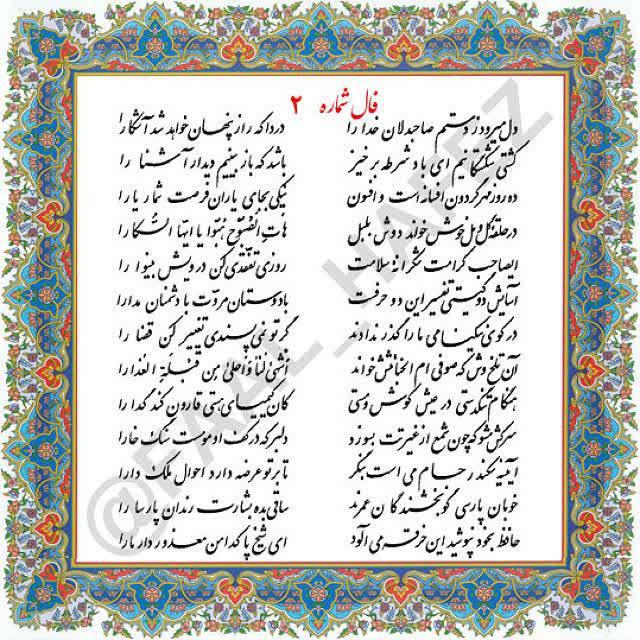 فال شماره ۲
دل میرود ز دستم صاحبدلان خدا را دردا که راز پنهان خواهد شد آشکارا
کشتی شکستگانیم ای باد شرطه برخیز باشد که باز بینیم دیدار آشنا را
ده روزه مهر گردون افسانه است و افسون نیکی بجای یاران فرصت شمار یارا
در حلقه گل و مل خوش خواند دوش بلبل هات الصبوح هبوا یا ایها السکارا
ایصاحب کرامت شکرانه سلامت روزی تفقدی کن درویش بینوا را
آسایش دو گیتی تفسیر این دو حرفست با دوستان مروت با دشمنان مدارا
در کوی نیکنامی ما را گذر ندادند گر تو نمی پسندی تغییر کن قضا را
آن تلخ وش که صوفی ام الخبائثش خواند اشهی لنا و احلی من قبلة العذارا
هنگام تنگدستی در عیش کوش و مستی کان کیمیای هستی قارون کند گدا را
سرکش مشو که چون شمع از غیرتت بسوزد دلبر که در کف او مومست سنگ خارا
آیینه سکندر جام می است بنگر تا بر تو عرضه دارد احوال ملک دارا
خوبان پارسی گو بخشندگان عمرند ساقی بده بشارت رندان پارسا را
حافظ بخود نپوشید این خرقه می آلود ای شیخ پاکدامن معذور دار ما را
@FAAL_HAFEZ